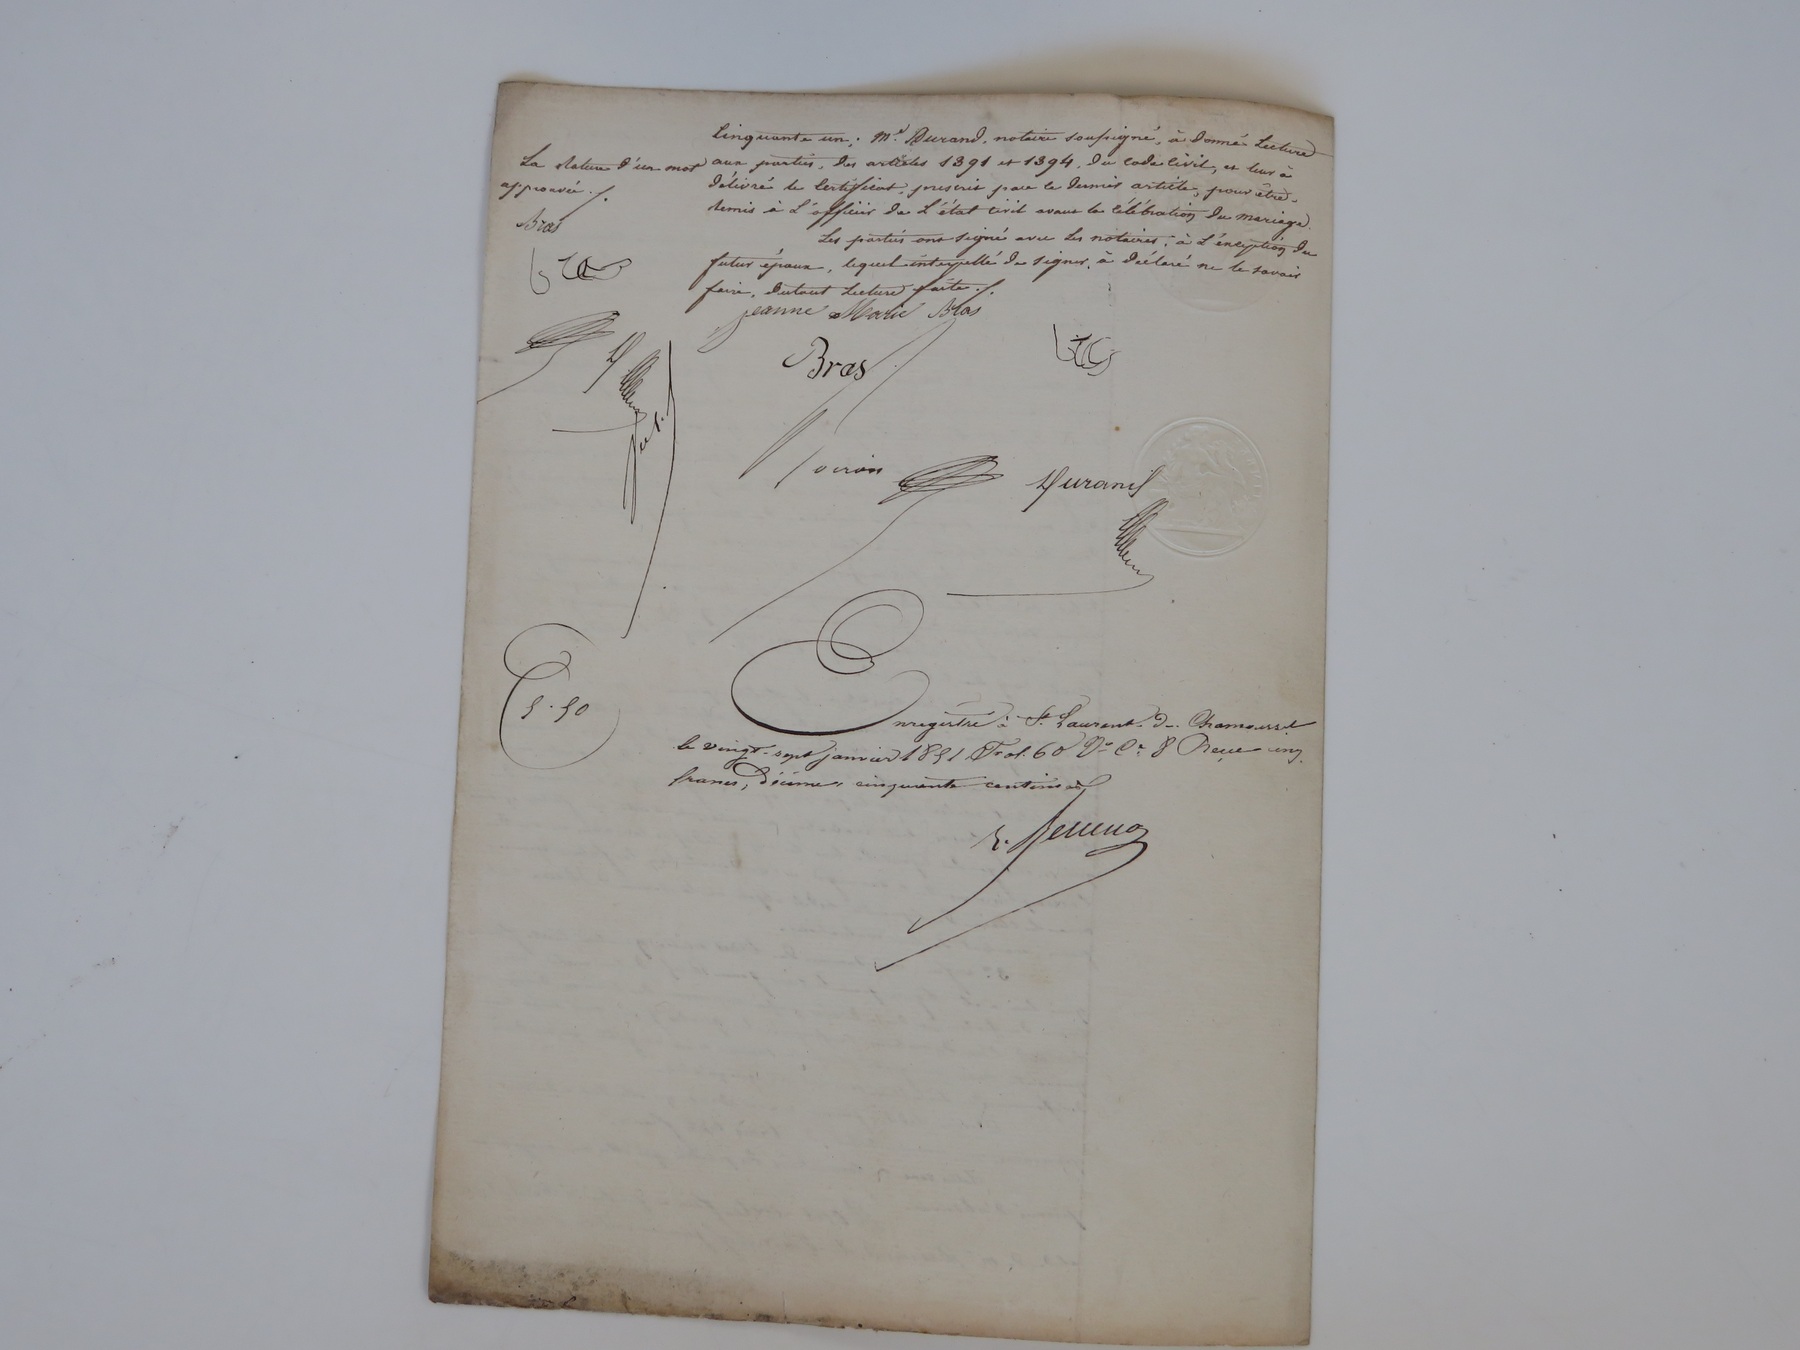 Cinquante un. Me Durand, notaire soussigné, à donné Lecture
aux parties, des articles 1391 et 1394, du code Civil, et leur à
délivré le Certificat, prescrit par le dernier article, pour être
remis à L'officier de L'état Civil avant la Célébration du mariage.
Les parties ont signé avec les notaires, à L'exception du
futur époux, lequel interpellé de signer, à déclaré ne le savoir
faire, dutout Lecture faite ./.
La rature d'un mot
approuvée ./.
Bras
Jeanne Marie Bras
Bras
Durand
5.50
Enregistré à St Laurent de Chamousset
le vingt-sept janvier 1851 Fol. 60 Vo Ce 8 Reçu cinq
francs, décime, cinquante centimes